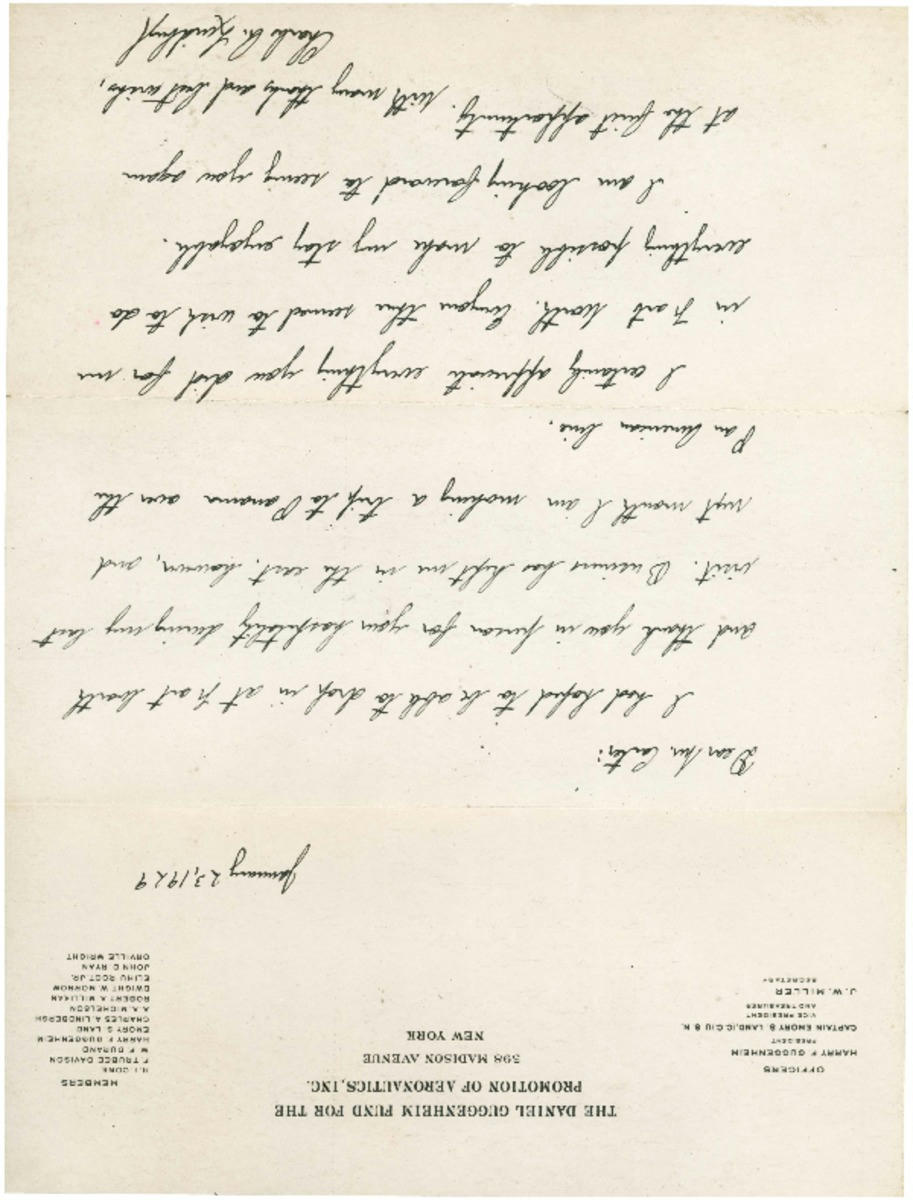 THE DANIEL GUGGENHEIM FUND FOR THE
PROMOTION OF AERONAUTICS, INC.
598 MADISON AVENUE
NEW YORK
OFFICERS
HARRY F GUGGENHEIM
PRESIDENT
CAPTAIN EMORY S LAND, (C.C.) U S N.
VICE PRESIDENT
AND TREASURER
J. W. MILLER
SECRETARY
MEMBERS
H. I. CONE
F. TRUBEE DAVISON
W. F. DURAND
HARRY F. GUGGENHEIM
EMORY S. LAND
CHARLES A. LINDBERGH
A. A. MICHELSON
ROBERT A. MILLIKAN
DWIGHT W. MORROW
ELIHU ROOT, JR.
JOHN D RYAN
ORVILLE WRIGHT
January 23, 1929
Dear Mr. Carter:
I had hoped to be able to drop in at Fort Worth
and thank you in person for your hospitality during my last
visit. Business has kept me in the east, however, and
next month I am making a trip to Panama over the
Pan American line.
I certainly appreciate everything you did for me
in Fort Worth. Everyone there seemed to wish to do
everything possible to make my stay enjoyable.
I am looking forward to seeing you again
at the first opportunity. With many thanks and best wishes,
Charles A. Lindbergh